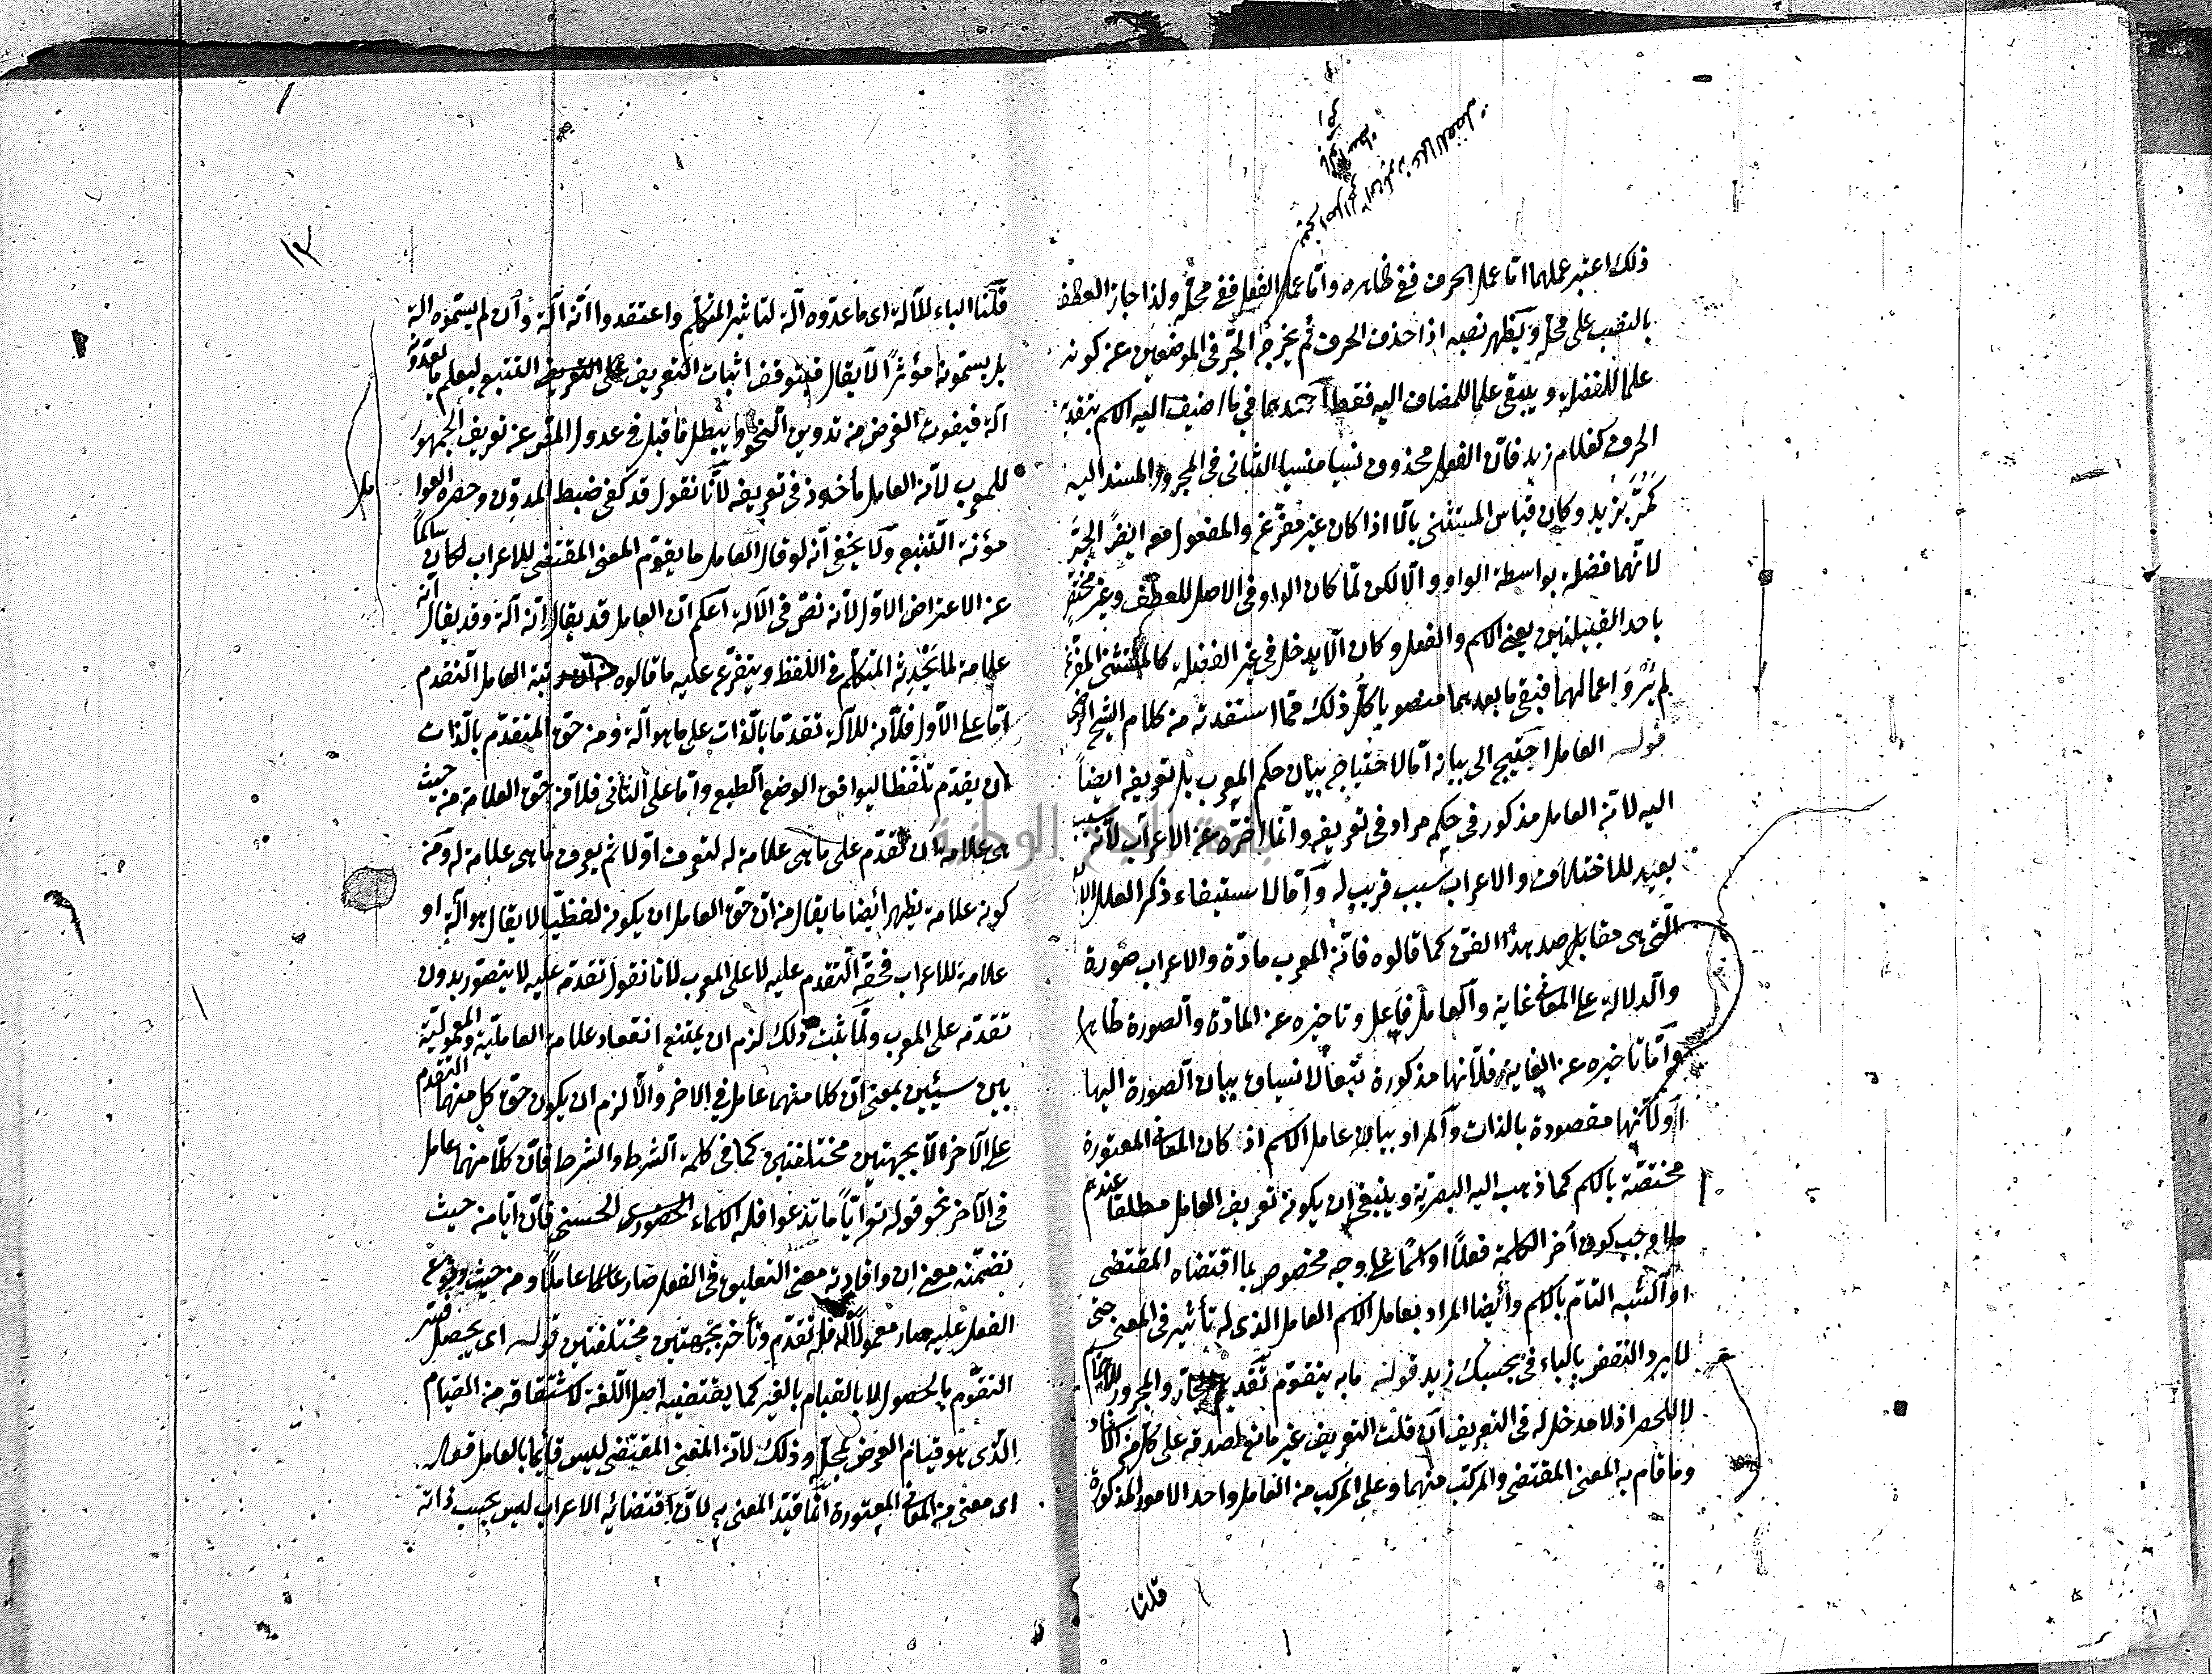 ذلك اعتبر عملهما اما عمل الحرف ففي ظاهره واما عمل الفعل ففي محله ولذا جاز العطف
بالنصب على محله ويظهر نصبه اذا حذف الحرف ثم يخرجه الجر في الموضعين عن كونه
علما للفضلة ويبقى علما للمضاف اليه فقط احدهما في ما اضيف اليه الاسم بتقدير
الحرف كغلام زيد فان الفعل محذوف نسيا منسيا الثاني في المجرور المسند اليه
كمُرَّ بزيد وكان قياس المستثنى بالا اذا كان غير مفرغ والمفعول معه ايضا الجر
لانهما فضلة بواسطة الواو والا لكن لما كان الواو في الاصل للعطف وغير مختص
باحد القبيلتين يعني الاسم والفعل وكان الا يدخل في غير الفضلة كالمستثنى المفرغ
لم يروا اعمالهما فبقي ما بعدهما منصوبا كل ذلك مما استفدته من كلام الشيخ الرضي
قوله العامل احتيج الى بيانه اما لاحتياج بيان حكم المعرب بل تعريفه ايضاً
اليه لان العامل مذكور في حكمه مراد في تعريفه وانما اخره عن الاعراب لانه سبب
بعيد للاختلاف والاعراب سبب قريب له واما لاستيفاء ذكر العلل
التي هي مقابل صدر هذا الفن كما قالوه فان المعرب مادة والاعراب صورة
والدلالة على المعاني غاية والعامل فاعل وتاخيره عن المادة والصورة ظاهر
واما تاخيره عن الغاية فلانها مذكورة تبعا لانسياق بيان الصورة اليها
او لانها مقصودة بالذات والمراد بيان عامل الاسم اذ كان المعاني المعتورة
مختصة بالاسم كما ذهب اليه البصرية وينبغي ان يكون تعريف العامل مطلقا عندهم
ما اوجب كون آخر الكلمة فعلاً او اسمًا على وجه مخصوص بما اقتضاه المقتضى
او الشبه التام بالاسم وايضا المراد بعامل الاسم العامل الذي له تأثير في المعنى حتى
لا يرد النقض بالباء في بحسبك زيد قوله ما به يتقوم تقديم الجار والمجرور للاهتمام
لا للحصر اذ لا مدخل له في التعريف ان قلت التعريف غير مانع لصدقه على كل من الاسناد
وما قام به المعنى المقتضى والمركب منهما وعلى المركب من العامل واحد الامور المذكورة
قلنا
١٢
قلنا الباء للآلة اى ما عدوه آلة لتاثير المتكلم واعتقدوا انه آلة وان لم يسموه آلة
بل يسمونه مؤثرًا لا يقال فيتوقف اثبات التعريف على التتبع ليعلم ما يعدونه
آلة فيفوت الغرض من تدوين النحو ويبطل ما قيل في عدول المص عن تعريف الجمهور
للمعرب لان العامل مأخوذ في تعريفه لانا نقول قد كفى ضبط المدون وحصره العوامل
مؤنة التتبع ولا يخفى انه لو قال العامل ما يقوم المعنى المقتضى للاعراب لكان سالماً
عن الاعتراض الاول لانه نص في الآلة اعلم ان العامل قد يقال انه آلة وقد يقال انه
علامة لما يحدثه المتكلم في اللفظ ويتفرع عليه ما قالوه من ان رتبة العامل التقدم
اما على الاول فلان للآلة تقدما بالذات على ما هو آلة ومن حق المتقدم بالذات
ان يقدم تلفظا ليوافق الوضع الطبع واما على الثاني فلان حق العلامة من حيث
هي علامة ان تقدم على ما هي علامة له لتعرف اولا ثم يعرف ما هي علامة له ومن
كونه علامة يظهر ايضا ما يقال من ان حق العامل ان يكون لفظيا لا يقال هو آلة او
علامة للاعراب فحقه التقدم عليه لا على المعرب لانا نقول تقدمه عليه لا يتصور بدون
تقدمه على المعرب ولما ثبت ذلك لزم ان يمتنع انعقاد علامة العاملية والمعمولية
بين سيئين بمعنى ان كلا منهما عامل في الاخر والا لزم ان يكون حق كل منهما التقدم
على الآخر الا بجهتين مختلفتين كما في كلمة الشرط والشرط فان كلا منهما عامل
في الآخر نحو قوله تع اياً ما تدعوا فله الاسماء الحسنى فان ايا من حيث
تضمنه معنى ان وافادته معنى التعليق في الفعل صار عاملا ومن حيث وقوع
الفعل عليه صار معمولا له فله تقدم وتأخر بجهتين مختلفتين قوله اى يحصل فسر
التقوم بالحصول لا بالقيام بالغير كما يقتضيه اصل اللغة لاشتقاقه من القيام
الذى هو قيام العرض بمحله وذلك لان المعنى المقتضى ليس قائما بالعامل قوله
اى معنى من المعاني المعتورة انما قيد المعنى به لان اقتضائه الاعراب ليس بحسب ذاته